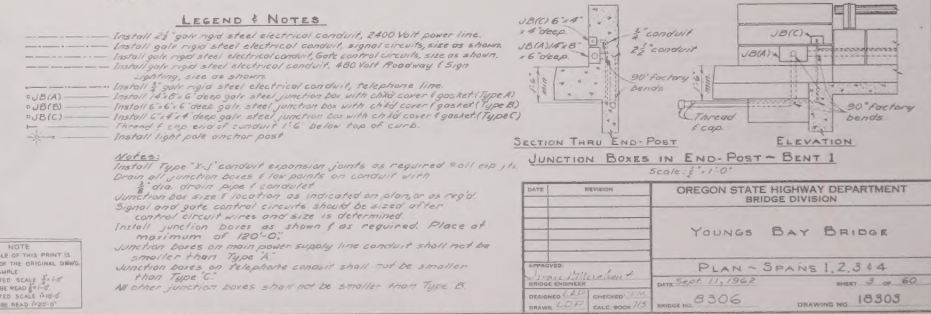 LEGEND & NOTES
Install 2½" galv. rigid steel electrical conduit, 2400 Volt power line.
Install galv. rigid steel electrical conduit, signal circuits, size as shown.
Install galv. rigid steel electrical conduit, Gate control circuits, size as shown.
Install galv. rigid steel electrical conduit, 480 Volt Roadway & Sign
Lighting, size as shown.
Install ¾" galv. rigid steel electrical conduit, telephone line.
JB(A) Install 14"x8"x6" deep galv. steel junction box with chk'd cover & gasket. (Type A)
JB(B) Install 6"x6"x6" deep galv. steel junction box with chk'd cover & gasket. (Type B)
JB(C) Install 6"x4"x4" deep galv. steel junction box with chk'd cover & gasket. (Type C)
Thread & cap end of conduit 1'6" below top of curb.
Install light pole anchor post
Notes:
Install Type "X-J" conduit expansion joints as required @ all exp. jts.
Drain all junction boxes & low points on conduit with
dia. drain pipe & condulet
Junction box size & location as indicated on plan, or as req'd.
Signal and gate control circuits should be sized after
control circuit wires and size is determined
Install junction boxes as shown & as required. Place at
maximum of 120'-0".
Junction boxes on main power supply line conduit shall not be
smaller than Type "A"
Junction boxes on telephone conduit shall not be smaller
than Type "C".
All other junction boxes shall not be smaller than Type "B".
NOTE
OF THIS PRINT IS
OF THE ORIGINAL DRWG.
SCALE
BE READ
SCALE
BE READ
JB(C) 6"x4"
x4" deep.
JB(A) 14"x8"
x6" deep.
¾" conduit
2½" conduit
90° factory
bends
1'-6" min.
SECTION THRU END-POST
JB(C)
JB(A)
1'-6" min.
Thread
& cap.
90° factory
bends.
ELEVATION
JUNCTION BOXES IN END-POST ~ BENT 1
Scale: ½"=1'-0"
DATE REVISION
OREGON STATE HIGHWAY DEPARTMENT
BRIDGE DIVISION
YOUNGS BAY BRIDGE
PLAN ~ SPANS 1, 2, 3 & 4
APPROVED:
BRIDGE ENGINEER
DATE Sept. 11, 1962 SHEET 3 OF 60
DESIGNED CHECKED
DRAWN CALC. BOOK 715
BRIDGE NO. 8306 DRAWING NO. 18303